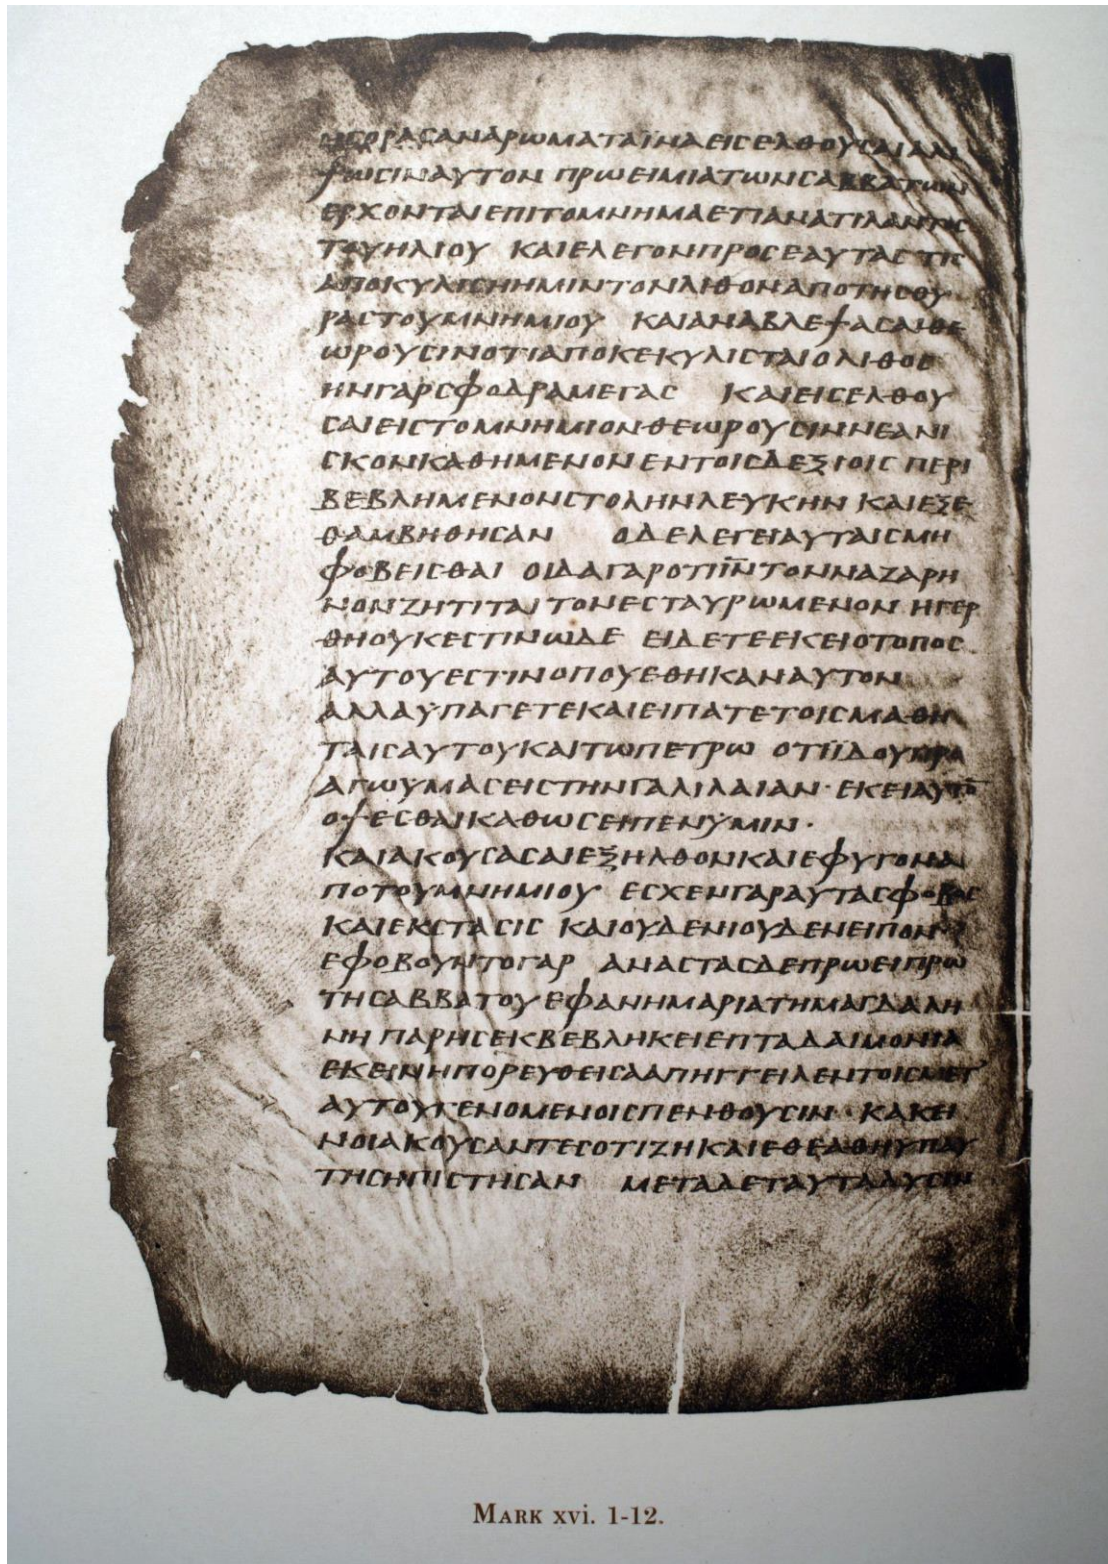 ηγορασαναρωματαϊναεισελθουσαιαλι
ψωσιναυτον πρωειμιατωνσαββατων
ερχονταιεπιτομνημαετιανατιλαντος
τουηλιου καιελεγονπροσεαυτας τις
αποκυλισηημιντονλιθοναποτησθυ
ραστουμνημιου καιαναβλεψασαιθε
ωρουσινοτιαποκεκυλισταιολιθος
ηνγαρσφοδραμεγας καιεισελθου
σαιειστομνημιονθεωρουσιννεανι
σκονκαθημενονεντοισδεξιοις περι
βεβλημενονστολην λευκην καιεξε
θαμβηθησαν οδελεγειαυταισμη
φοβεισθαι οιδαγαροτιι̅ν̅τονναζαρη
νονζητιται τονεσταυρωμενον ηγερ
θηουκεστινωδε ειδετεεκειοτοπος
αυτουεστινοπουεθηκαναυτον
αλλαϋπαγετεκαιειπατετοισμαθη
ταισαυτουκαιτωπετρω οτιϊδουπρο
αγωυμασειστηνγαλιλαιαν· εκειαυτο̅
οψεσθαικαθωσειπενϋμιν·
καιακουσασαιεξηλθονκαιεφυγονα
ποτουμνημιου εσχενγαραυτασφοβος
καιεκστασις καιουδενιουδενειπον·
εφοβουντογαρ αναστασδεπρωειπρω
τησαββατουεφανημαριατημαγδαλη
νη παρησεκβεβληκειεπταδαιμονια
εκεινηπορευθεισααπηγγειλεντοισμετ
αυτουγενομενοισπενθουσιν· κακει
νοιακουσαντεσοτιζηκαιεθεαθηυπαυ
τησηπιστησαν μεταδεταυταδυσιν
Mark xvi. 1-12.